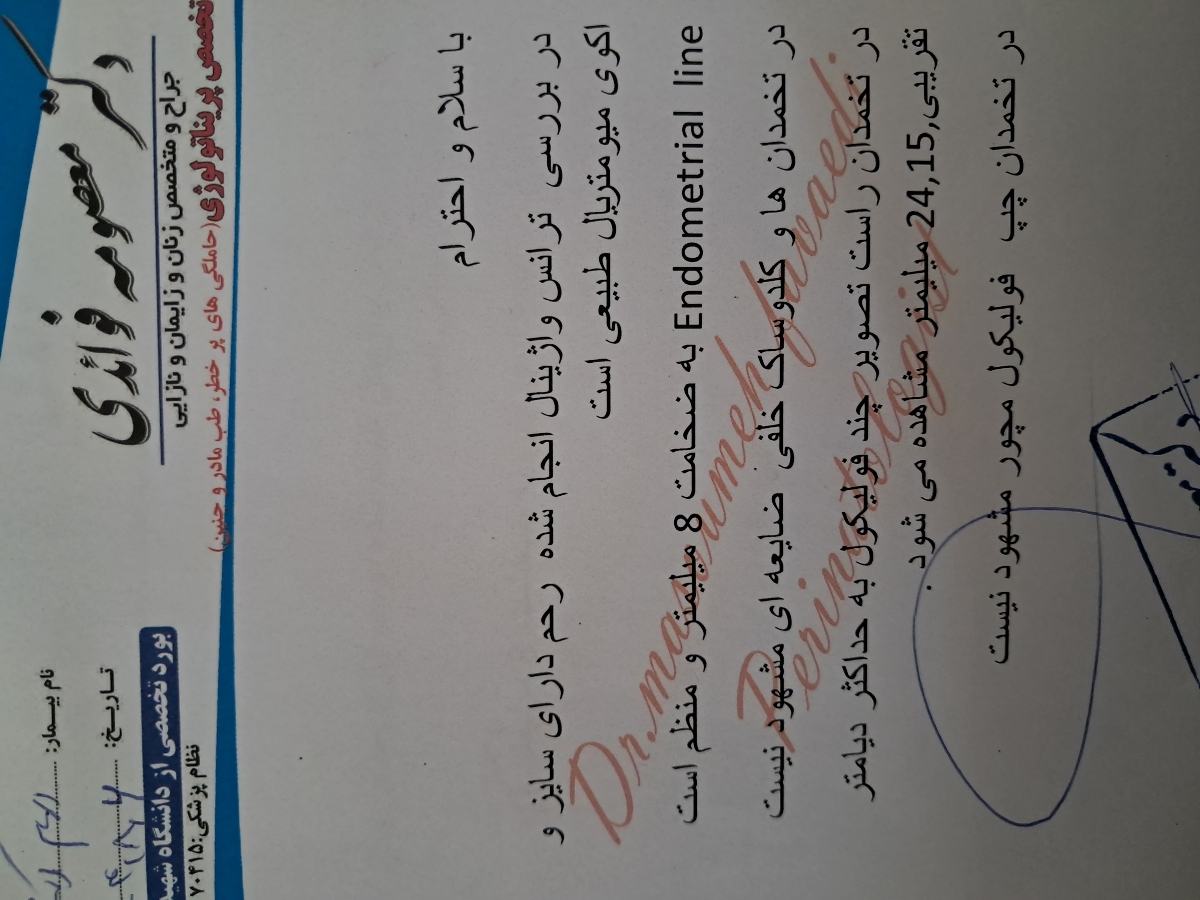 دکتر معصومه فوائدی
جراح و متخصص زنان و زایمان و نازایی
تخصص پریناتولوژی(حاملگی های پر خطر، طب مادر و جنین)
نام بیمار:
تاریخ:
بورد تخصصی از دانشگاه شهید
نظام پزشکی:۷۰۴۱۵
با سلام و احترام
در بررسی ترانس واژینال انجام شده رحم دارای سایز و
اکوی میومتریال طبیعی است
Endometrial line به ضخامت 8 میلیمتر و منظم است
در تخمدان ها و کلدوساک خلفی ضایعه ای مشهود نیست
در تخمدان راست تصویر چند فولیکول به حداکثر دیامتر
تقریبی,24,15 میلیمتر مشاهده می شود.
در تخمدان چپ فولیکول مچور مشهود نیست
Dr.masoumeh favaedi
Perinatologist